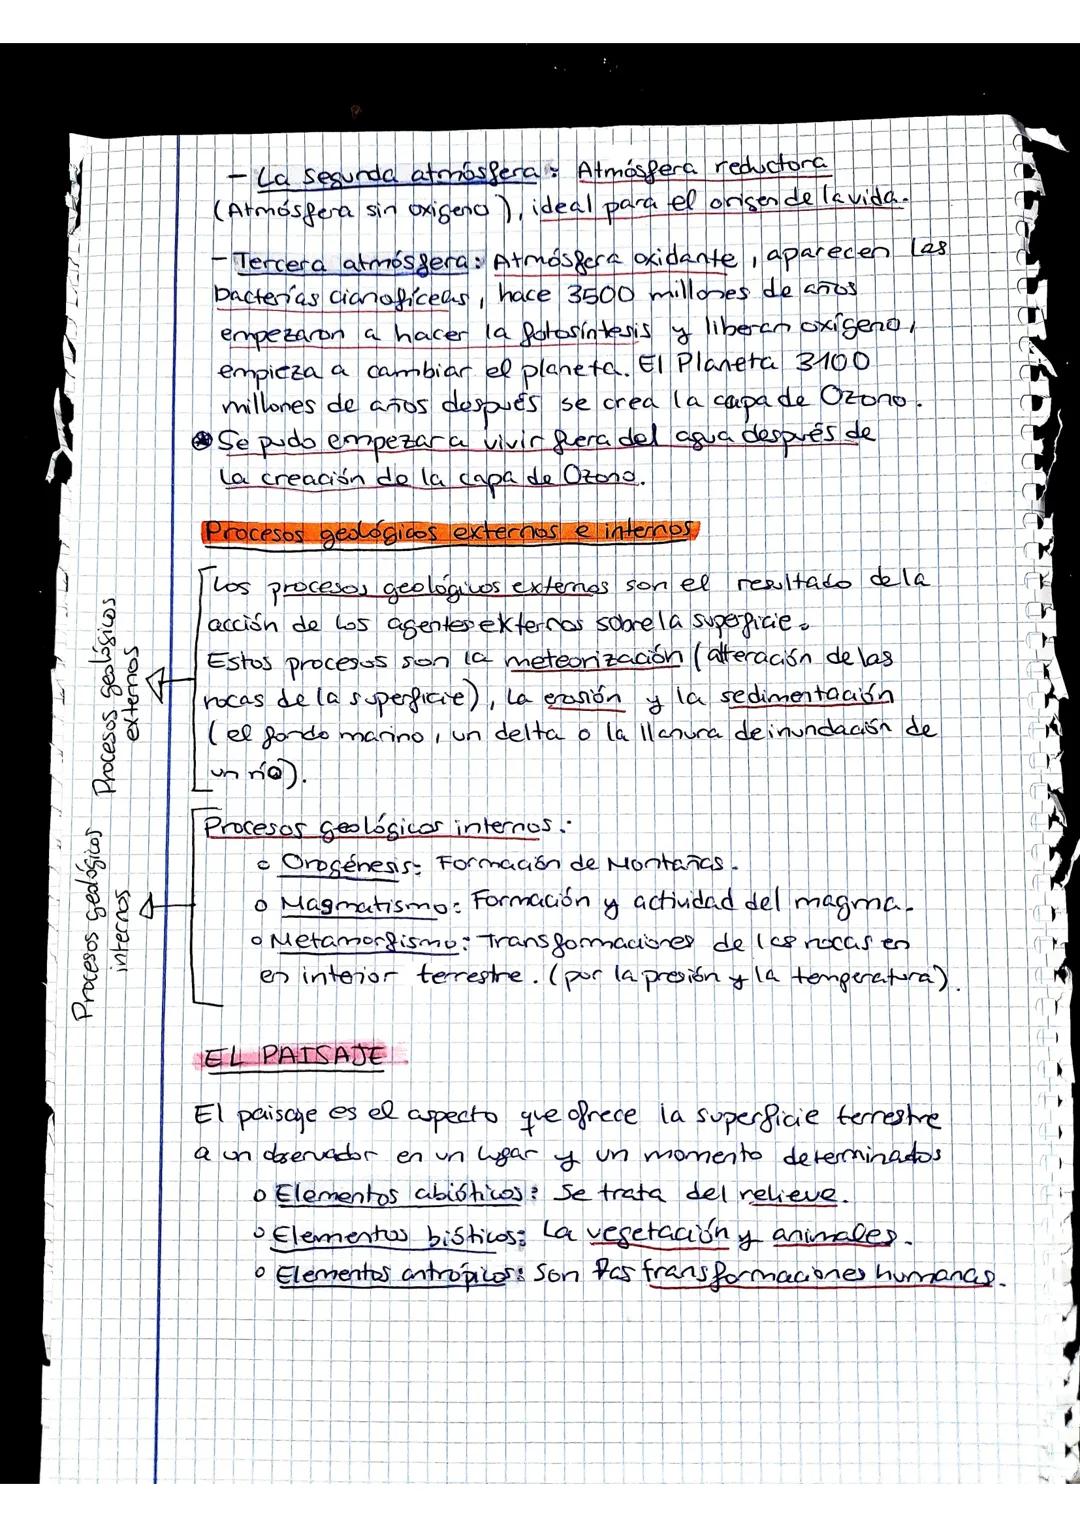 - La segunda atmósfera: Atmósfera reductora
(Atmósfera sin oxigeno), ideal para el origen de la vida.
- Tercera atmósfera: Atmósfera oxidante, aparecen las
bacterias cianofíceas, hace 3500 millones de años
empezaron a hacer la fotosíntesis y liberan oxígeno,
empieza a cambiar el planeta. El Planeta 3100
millones de años después se crea la capa de Ozono.
Se pudo empezar a vivir fuera del agua después de
la creación de la capa de Ozono.
Procesos geológicos externos e internos
Los procesos geológicos externos son el resultado de la
acción de los agentes externos sobre la superficie.
Estos procesos son la meteorización (alteración de las
rocas de la superficie), la erosión y la sedimentación
(el fondo marino, un delta o la llanura de inundación de
un río).
Procesos geológicos
externos
Procesos geológicos internos:
o Orogénesis: Formación de Montañas.
o Magmatismo: Formación y actividad del magma.
o Metamorfismo: Transformaciones de las rocas en
en interior terrestre. (por la presión y la temperatura).
Procesos geológicos
internos
EL PAISAJE
El paisaje es el aspecto que ofrece la superficie terrestre
a un observador en un lugar y un momento determinados
o Elementos abióticos: Se trata del relieve.
o Elementos bióticos: La vegetación y animales.
o Elementos antrópicos: Son las transformaciones humanas.